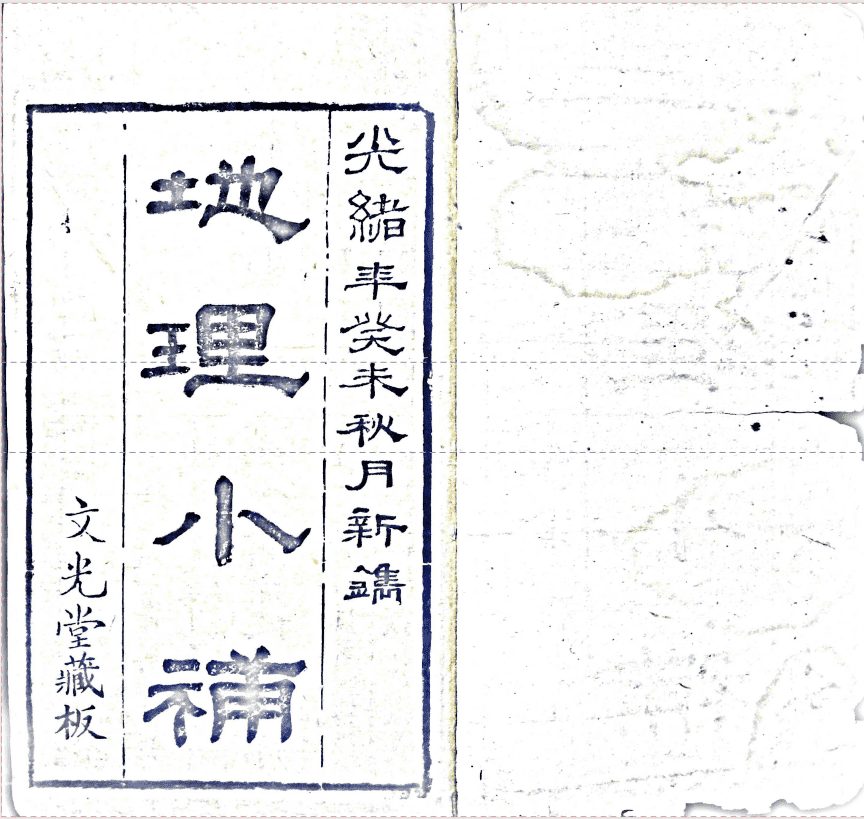 光緒年癸未秋月新鐫
地理小補
文光堂藏板